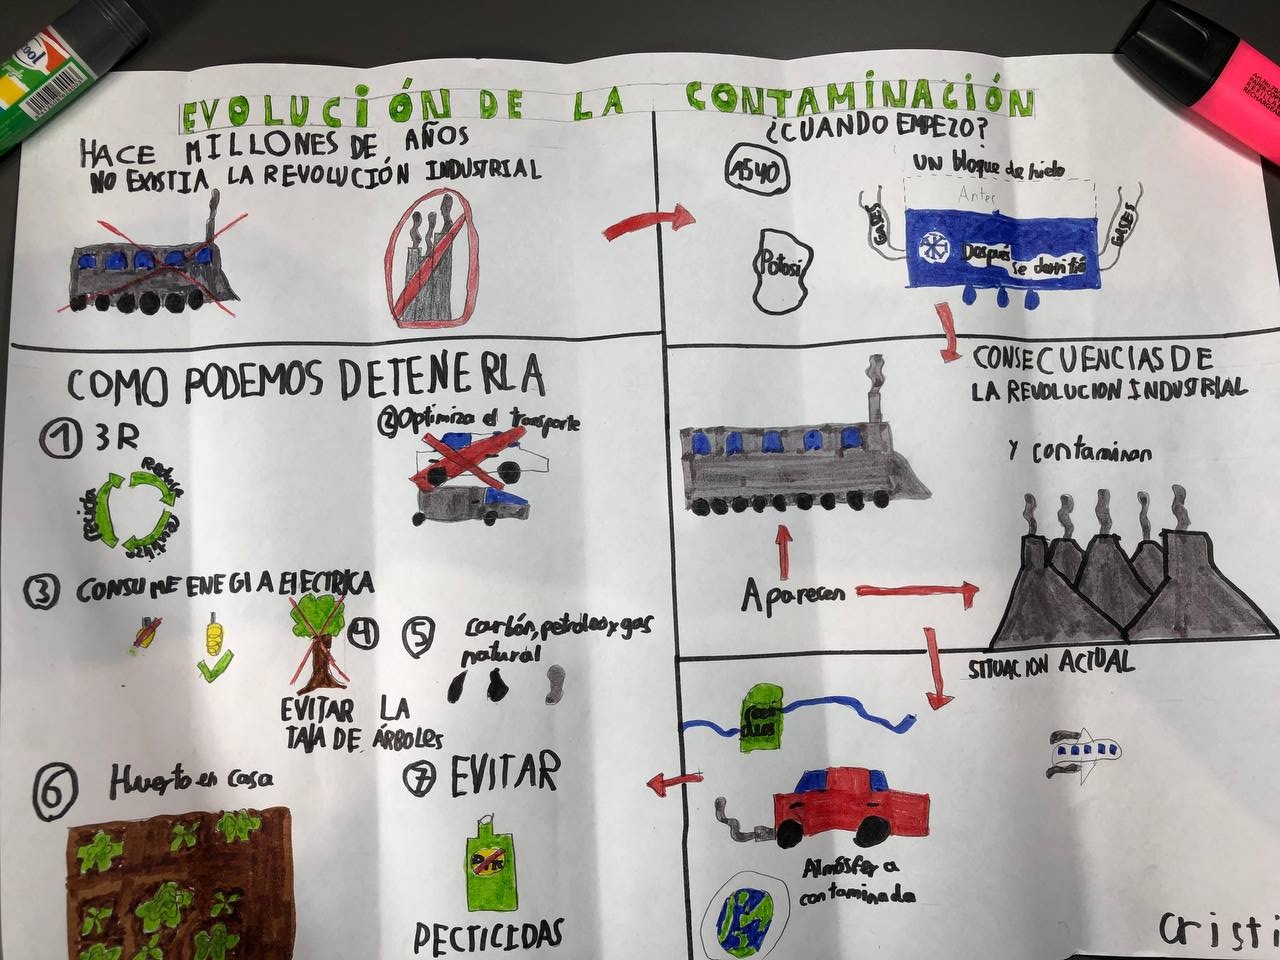 EVOLUCIÓN DE LA CONTAMINACIÓN
HACE MILLONES DE AÑOS
NO EXISTIA LA REVOLUCIÓN INDUSTRIAL
¿CUANDO EMPEZO?
1540
Potosi
un bloque de hielo
Antes
GASES
Después
se derritió
GASES
CONSECUENCIAS DE
LA REVOLUCION INDUSTRIAL
Y contaminan
Aparecen
SITUACION ACTUAL
Atmósfera
contaminada
COMO PODEMOS DETENERLA
1 3R
Reduce
Reutiliza
Recicla
2 Optimiza el transporte
3 CONSUME ENEGIA ElECTRICA
4
EVITAR LA
TAJA DE ÁRBOLES
5 carbón, petroleo y gas
natural
6 Huerto en casa
7 EVITAR
PECTICIDAS
Cristi